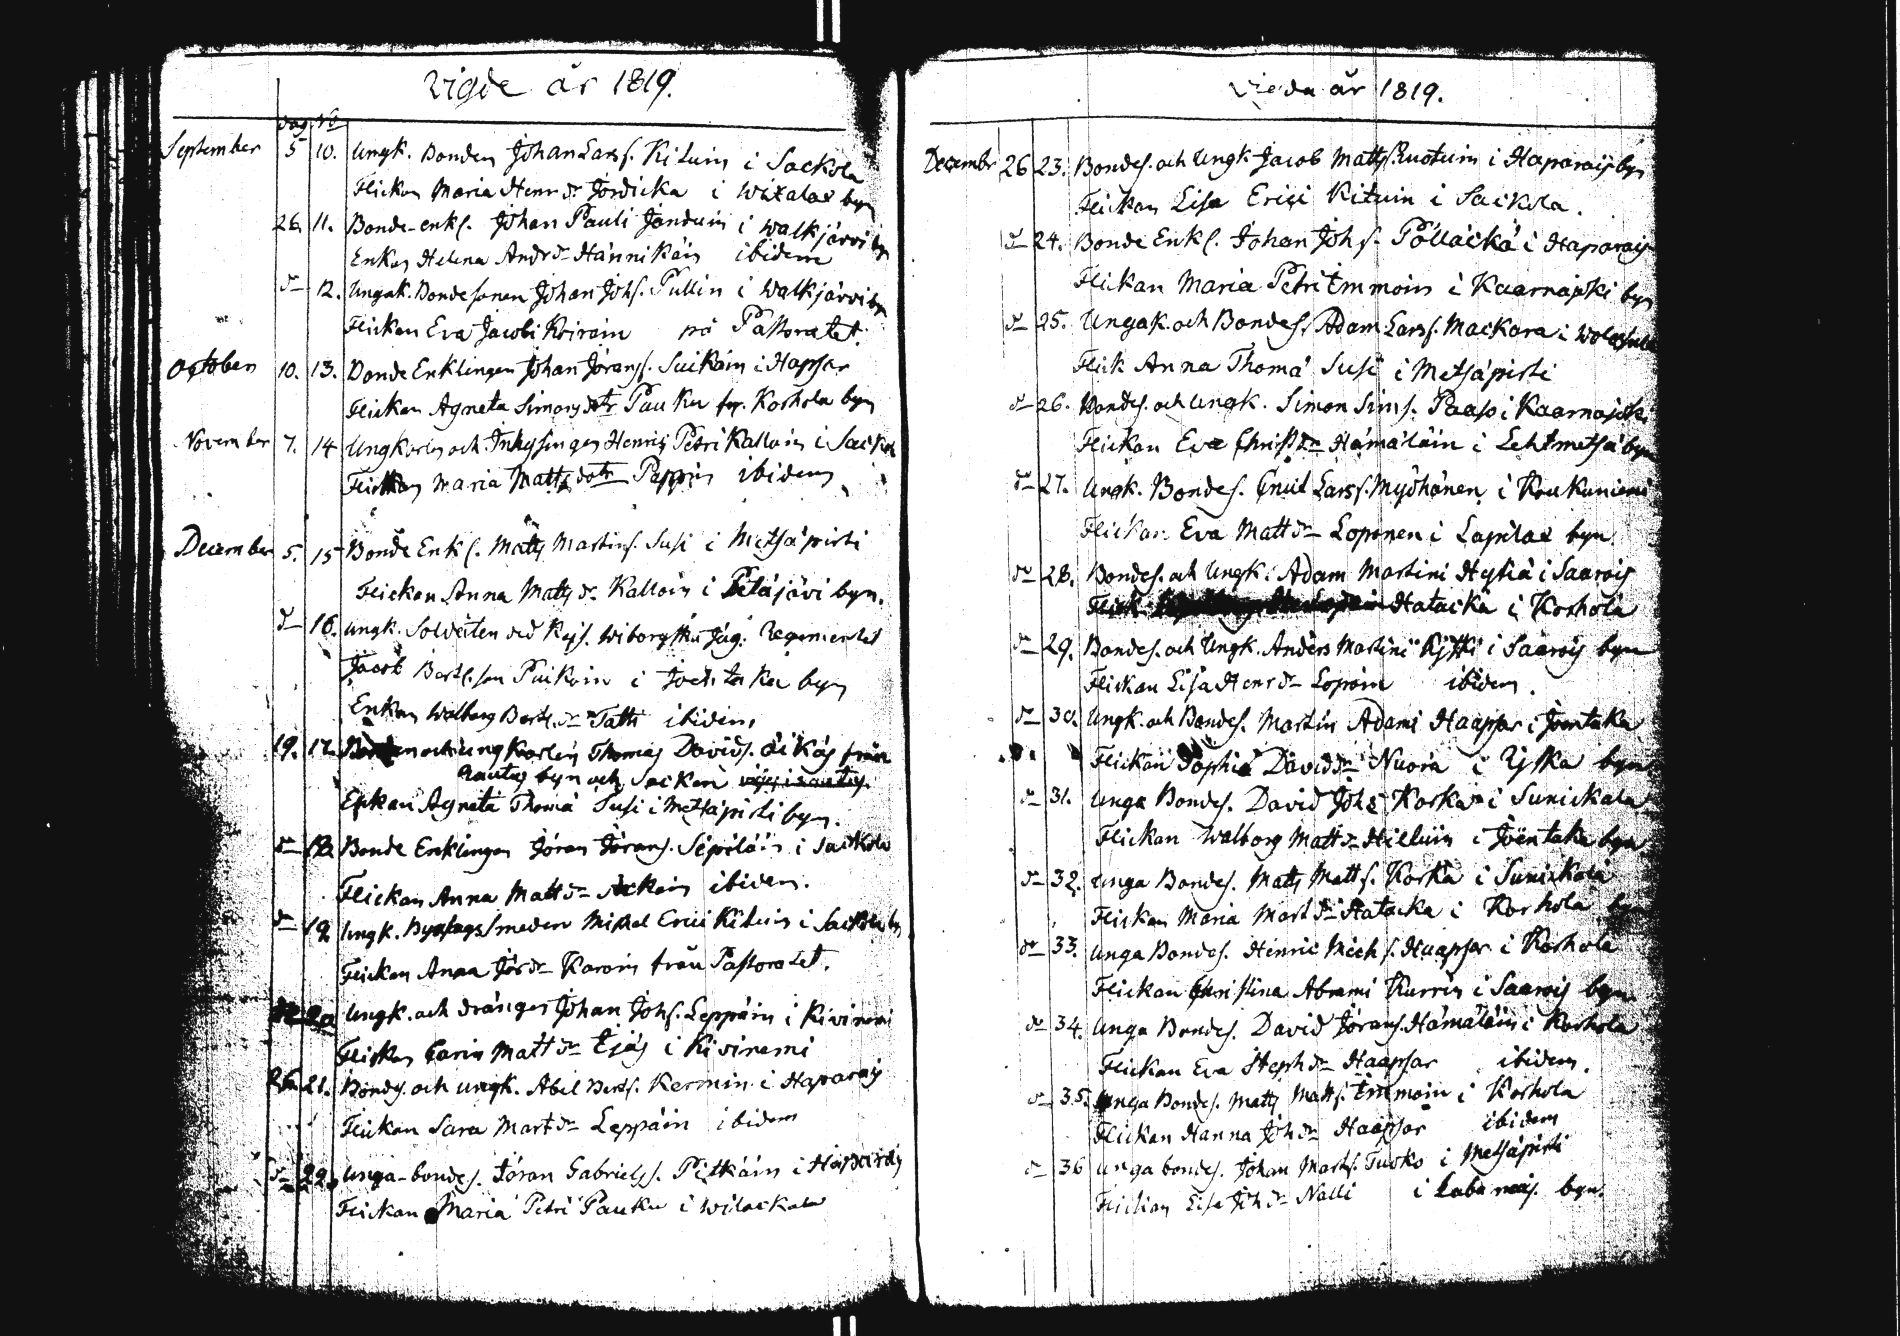 Vigde år 1819.
dag. No
September 5 10. Ungk. Bonden Johan Larss. Kituin i Sackola
Flickan Maria Henr dr Jördicka i Wixalax byn
26. 11. Bonde-enkl. Johan Pauli Janduin i Walkjärvi by
Enkan Helena Andr dr Hännikäin ibidem
dr 12. Ungk. Bondesonen Johan Johs. Pullin i Walkjärvi by
Flickan Eva Jacobi Koirain på Pastoratet.
October 10. 13. Bonde Enklingen Johan Jörans. Suikain i Hapsar
Flickan Agneta Simons dotr Pauku fr. Korhola byn
November 7. 14 Ungkarlen och Inhysingen Henric Petri Kalloin i Sackola
Flickan Maria Matts dotr Peppin ibidem
December 5. 15 Bonde Enkl. Matts Martins. Susi i Metsäpirti
Flickan Anna Matts dr Kalloin i Petäjärvi byn.
dr 16. Ungk. Soldaten ved Kejs. Wiborgska Jäg. Regementet
Jacob Bertelson Puikoin i Joentaka byn
Enkan Walborg Bert. dr Tatti ibidem
19. 17. och ungkarlen Thomas Davids. från
Rautus byn och Socken
Enkan Agneta Thoma Susi i Metsäpirti byn.
dr 18. Bonde Enklingen Jöran Jörans. Sipiläin i Sackola
Flickan Anna Matt dr ibidem.
dr 19. Ungk. Mickel Erici Kituin i Sackola by
Flickan Anna Jör dr Karoin från Pastoratet.
dr 20 Ungk. och drängen Johan Johs. Leppäin i Kivinemi
Flickan Carin Matt dr Ejäs i Kivinemi
26. 21. Bondes. och ungk. Abel Berts. Kermin i Haparais
Flickan Sara Mart dr Leppäin ibidem
dr 22. Unga-bondes. Jöran Gabrielss. Pitkäin i Haparais
Flickan Maria Petri Pauku i Wilackala
Vigda år 1819.
Decembr 26 23. Bondes. och Ungk Jacob Matts. Ruotuin i Haparais byn
Flickan Lisa Erici Kituin i Sackola.
dr 24. Bonde Enkl. Johan Johs. Pölläckä i Haparais
Flickan Maria Petri Emmoin i Kaarnajoki byn
dr 25. Ungak. och Bondes. Adam Larss. Mackara i
Flick Anna Thoma Susi i Metsäpirti
dr 26. Bondes. och Ungk. Simon Sims. Paaso i Kaarnajoki
Flickan Eva Christ dr Hämäläin i Lehtmetsä byn
dr 27. Ungk. Bondes. Cnut Larss. Myöhänen i Koukuniemi
Flickan Eva Matt dr Loponen i Lapilax byn
dr 28. Bondes. och Ungk. Adam Martini Hytiä i Saarois
Flick. Hatacka i Korhola
dr 29. Bondes. och Ungk. Anders Martini Kytti i Saarois byn
Flickan Lisa Henr dr Lopoin ibidem.
dr 30. Ungk. och Bondes. Martin Adami Haapsar i Joentaka
Flickan Sophia David dr Nuora i Rjska byn
dr 31. Unga Bondes. David Johs. Korka i Sunickala
Flickan Walborg Matt dr Hilluin i Joentaka byn
dr 32. Unga Bondes. Matts Matts. Korka i Sunickala
Flickan Maria Mart dr Hatacka i Korhola byn
dr 33. Unga Bondes. Henric Mich s. Haapsar i Korhola
Flickan Christina Abrami Kurrin i Saarois byn
dr 34. Unga Bondes. David Jörans. Hämäläin i Korhola
Flickan Eva Steph dr Haapsar ibidem.
dr 35. Unga Bondes. Matts Matts. Emmoin i Korhola
Flickan Hanna Joh dr Haapsar ibidem
dr 36 Unga bondes. Johan Marts. Tuoko i Metsäpirti
Flickan Lisa Joh dr Nalli i byn.